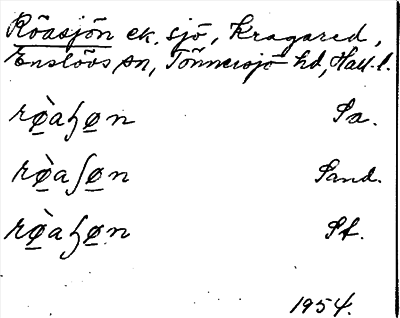 Röasjön ek. sjö, Kragared,
Enslövs sn, Tönnersjö hd, Hall. l.
rø̀aɧøn Sa.
rø̀aʃøn Sand.
rø̀aɧøn St.
1954.